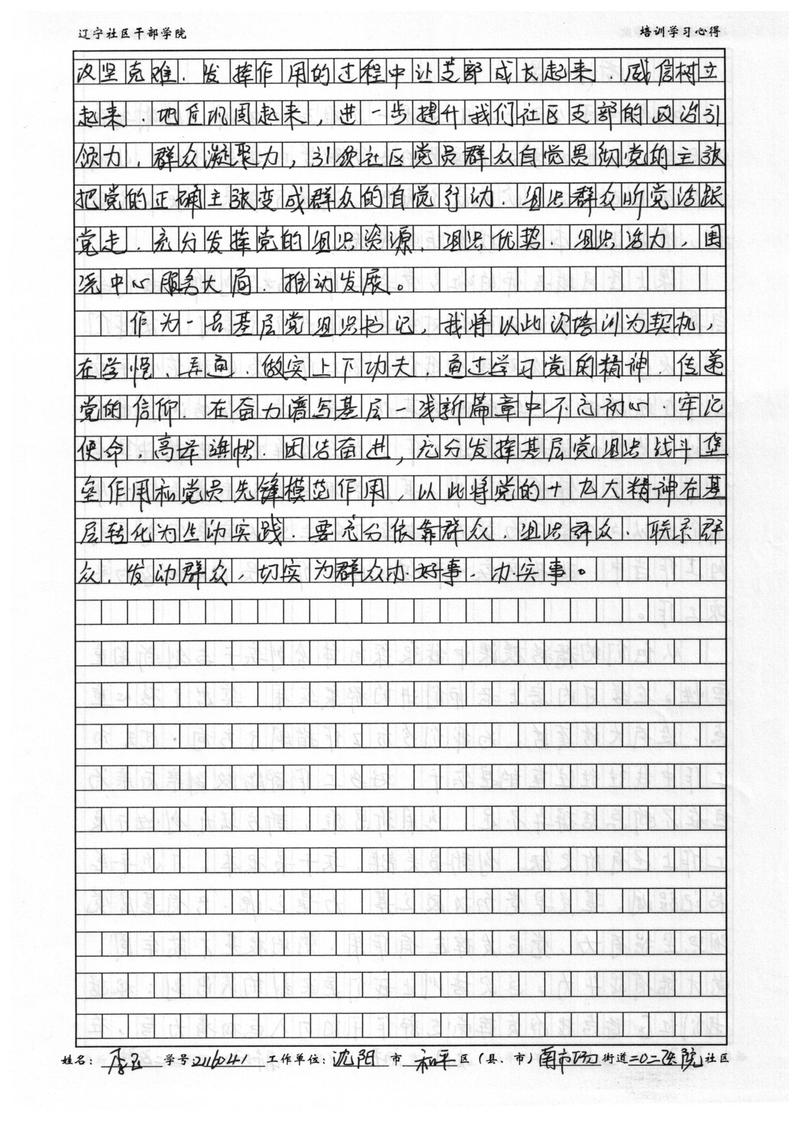 辽宁社区干部学院 培训学习心得
攻坚克难、发挥作用的过程中让支部成长起来、威信树立
起来、地位巩固起来，进一步提升我们社区支部的政治引
领力，群众凝聚力，引领社区党员群众自觉贯彻党的主张
把党的正确主张变成群众的自觉行动、组织群众听党话跟
党走、充分发挥党的组织资源、组织优势、组织活力，围
绕中心服务大局、推动发展。
作为一名基层党组织书记，我将以此次培训为契机，
在学懂、弄通、做实上下功夫，通过学习党的精神、传递
党的信仰、在奋力谱写基层一线新篇章中不忘初心、牢记
使命、高举旗帜、团结奋进，充分发挥基层党组织战斗堡
垒作用和党员先锋模范作用，以此将党的十九大精神在基
层转化为生动实践、要充分依靠群众、组织群众、联系群
众、发动群众，切实为群众办好事、办实事。
姓名： 学号2116041 工作单位：沈阳市 和平区（县、市）南市场街道二〇二医院社区